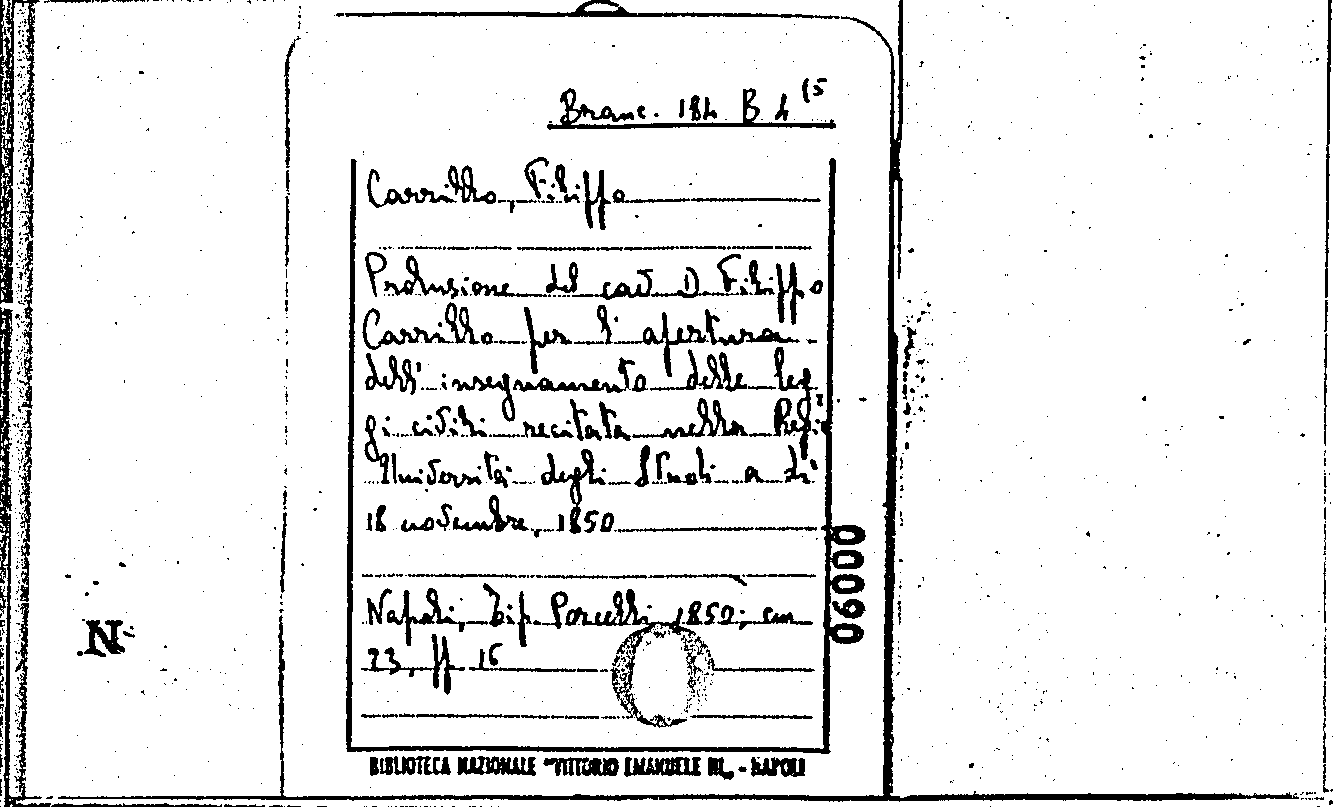 Branc. 184 B 4 (5
Carrillo, Filippo
Prolusione del cav. D. Filippo
Carrillo per l'apertura
dell'insegnamento delle leg
gi civili recitata nella Regia
Università degli Studi a dì
18 novembre 1850
Napoli, Tip. Porcelli, 1850; cm
23, pp 16
06000
N
BIBLIOTECA NAZIONALE "VITTORIO EMANUELE III„ - NAPOLI